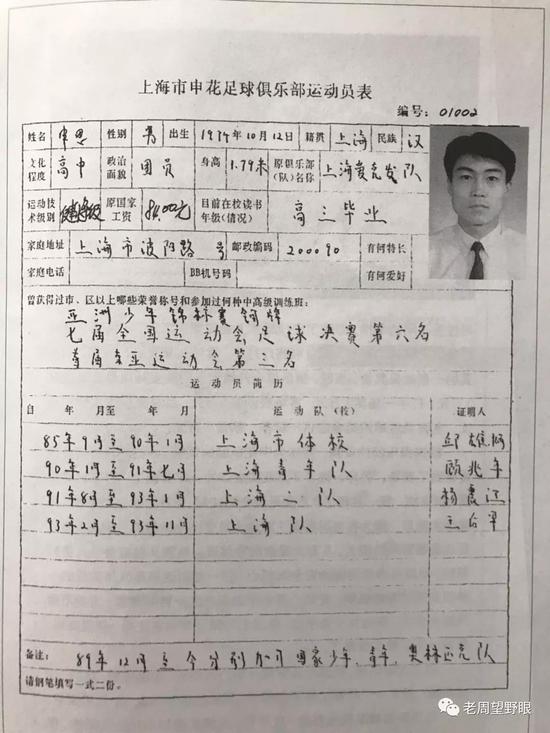 上海市申花足球俱乐部运动员表
编号: 01002
姓名 申思 性别 男 出生 1974年10月12日 籍贯 上海 民族 汉
文化程度 高中 政治面貌 团员 身高 1.79米 原俱乐部(队)名称 上海麦克发队
运动技术级别 健将级 原国家工资 元 目前在校读书年级(情况) 高三毕业
家庭地址 上海市波阳路 号 邮政编码 200090 有何特长
家庭电话 BB机号码 有何爱好
曾获得过市、区以上哪些荣誉称号和参加过何种中高级训练班:
亚洲少年锦标赛铜牌
七届全国运动会足球决赛第六名
首届东亚运动会第三名
运动员简历
自 年 月至 年 月 运动队(校) 证明人
85年9月至90年1月 上海市体校 邱
90年1月至91年七月 上海青年队 顾兆年
91年8月至93年1月 上海二队 杨
93年2月至93年11月 上海队 王后军
备注: 89年12月至今分别加入国家少年、青年、奥林匹克队
请钢笔填写一式二份。
老周望野眼